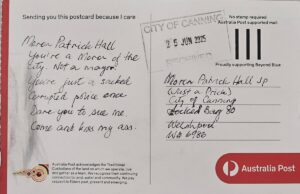 Sending you this postcard because I care
No stamp required
Australia Post supported mail
Proudly supporting Beyond Blue
CITY OF CANNING
25 JUN 2025
RECEIVED
Moron Patrick Hall
You're a Moron of the
city. Not a mayor
You're just a
corrupted price once
Dare you to sue me
Come and kiss my ass.
Moron Patrick Hall JP
(Just a Prick)
City of Canning
Locked Bag 80
Welshpool
WA 6986
Australia Post acknowledges the Traditional
Custodians of the land on which we operate, live
and gather as a team. We recognise their continuing
connection to land, water and community. We pay
respect to Elders past, present and emerging.
Australia Post